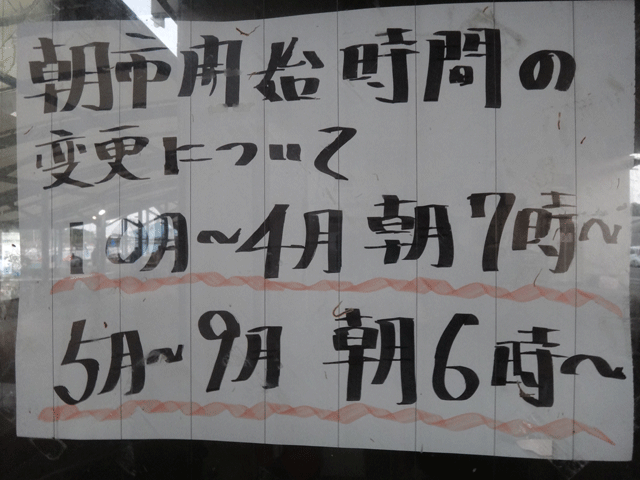 朝市開始時間の
変更について
10月～4月 朝7時～
5月～9月 朝6時～